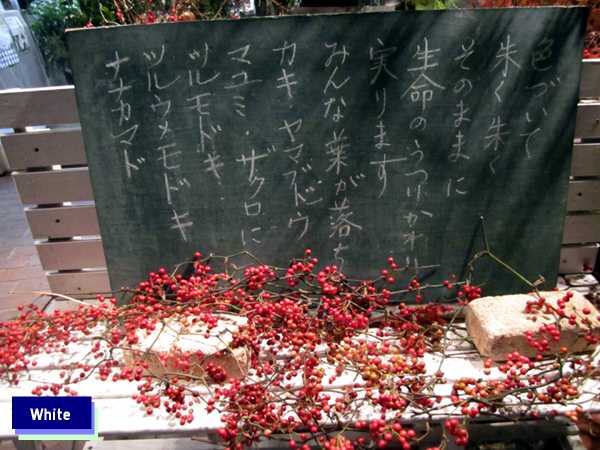 色づいて
朱く朱く
そのままに
生命のうつりかわり
実ります
みんな葉が落ち
カキ・ヤマブドウ
マユミ・ザクロに
ツルモドキ
ツルウメモドキ
ナナカマド
White